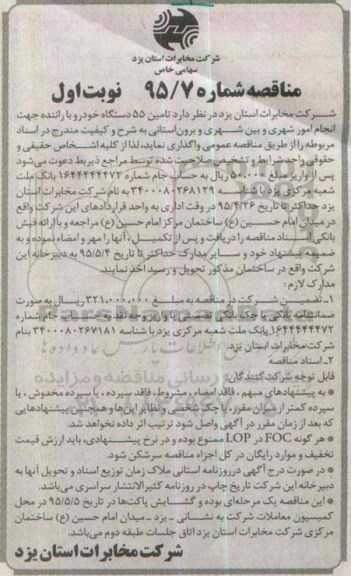 شرکت مخابرات استان یزد
سهامی خاص
مناقصه شماره ۹۵/۷ نوبت اول
شـرکت مخابرات استان یزد در نظر دارد تامین ۵۵ دستگاه خودرو با راننده جهت
انجام امور شهری و بین شهری و برون‌استانی به شرح و کیفیت مندرج در اسناد
مربوطه را از طریق مناقصه عمومی واگذاری نماید، لذا از کلیه اشـخاص حقیقی و
حقوقی واجد شرایط و تشخیص صلاحیت شده توسط مراجع ذیربط دعوت می‌شود
پس از واریز مبلغ ۵۰.۰۰۰ ریال به حساب جام شماره ۱۶۴۴۴۴۴۴۷۲ بانک ملت
شعبه مرکزی یزد با شناسه ۳۴۰۰۰۸۰۲۶۸۱۲۹ به نام شرکت مخابرات استان
یزد حداکثر تا تاریخ ۹۵/۴/۲۶ در وقت اداری به واحد قراردادهای این شرکت واقع
در میدان امام حسین (ع) ساختمان مرکز امام حسین (ع) مراجعه و با ارائه فیش
بانکی اسـناد مناقصه را دریافت و پس از تکمیـل، آنها را مهر و امضاء نموده و به
ضمیمه پیشنهاد خود و سـایر مدارک حداکثر تا تاریخ ۹۵/۵/۴ به دبیرخانه این
شرکت واقع در ساختمان مذکور تحویل و رسید اخذ نمایند.
مدارک لازم:
۱- تضمین شرکت در مناقصه به مبلـغ ۳۲۱.۰۰۰.۰۰۰ ریـال به صورت
ضمانتنامه بانکی یا چک بانکی تضمینی یا واریز وجه نقد به حساب جام شماره
۱۶۴۴۴۴۴۴۷۲ بانک ملت شعبه مرکزی یزد با شناسه ۳۴۰۰۰۸۰۲۶۷۱۸۱ بنام
شرکت مخابرات استان یزد.
۲- اسناد مناقصه
قابل توجه شرکت‌کنندگان:
* به پیشنهادهای مبهم، فاقد امضاء، مشروط، فاقد سپرده، یا سپرده مخدوش، یا
سپرده کمتر از میزان مقرر، یا چک شخصی و نظایر این‌ها و همچنین پیشنهادهایی
که بعد از زمان مقرر در آگهی واصل شود ترتیب اثر داده نخواهد شد.
* هر گونه FOC در LOP ممنوع بوده و در نرخ پیشـنهادی، باید ارزش قیمت
تخفیف و موارد رایگان در کل اجزاء مناقصه سرشکن شود.
* در صورت درج آگهی در روزنامه استانی ملاک زمان توزیع اسناد و تحویل آنها به
دبیرخانه این شرکت تاریخ چاپ در روزنامه کثیرالانتشار سراسری می‌باشد.
* این مناقصه یک مرحله‌ای بوده و گشـایش پاکت‌ها در تاریخ ۹۵/۵/۵ در محل
کمیسیون معاملات شرکت به نشـانی - یزد - میدان امام حسین (ع) ساختمان
مرکزی شرکت مخابرات استان یزد اتاق جلسات طبقه دوم می‌باشد.
شرکت مخابرات استان یزد